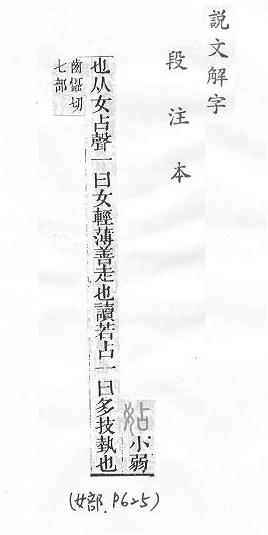 説文解字
段注本
㚲小弱
也从女占聲一曰女輕薄善走也讀若占一曰多技埶也
齒懾切
七部
(女部. P625)